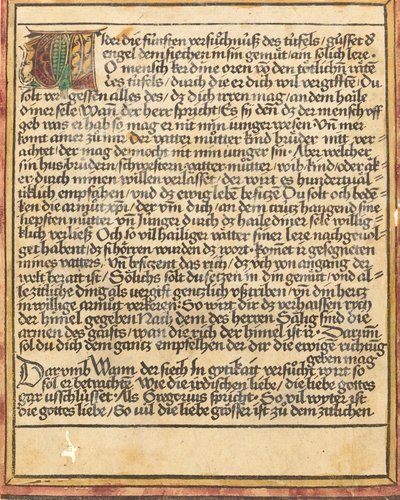 Wider die fünften versůchnůß des tüfels / güsset d̕
engel dem siechen in sin gemůt / ain sölich lere ·
O mensch ker dine oren võ den tötlichñ räte
des tüfels / durch die er dich wil vergifftẽ / Du
solt vergessen alles des / dz dich irren mag / an dem haile
diner sele Wañ der herr spricht / Es sy deñ dz der mensch off
geb was er hab so mag er nit min iunger wesen · Vñ mer
komt ainer zů mir der vatter můtter kind brůder nitt ver
achtet / der mag dennocht nit min iunger sin · Aber welher
sin hus / brůdern / schwestern / vatter můtter / wib / kind / oder
er durch minen willen verlasset / der wirt es hundertual
tiklich empfahen / und dz ewig lebẽ besiczẽ Du solt och bedẽ
ken die armůt / der vm̃ dich / an dem crütz hangend sine
liepsten můtter vñ Junger durch dz haile diner sele willig
klich verließ Och so vil hailiger vätter siner lere nachgeuol
get habent / dz si hörren wurden dz wort · komet ir gesegneten
mines vatters · Vñ besiczent das rich / dz üch von angang der
welt berait ist / Sölichs solt du seczen in din gemůt / vnd al
le zitliche ding als vergift genczlich vßtriben / vñ din hertz
in willige armůt verkeren · So wirt dir dz verhaissen rych
der himel gegeben Nach dem des herren Sälig sind die
armen des gaists / wan die rich der himel ist ir · Darum̃
solt du dich dem gantz empfelhen der dir die ewige richtung
geben mag
Darvmb Wann der siech In gytikait versůcht wirt so
sol er betrachtẽ / Wie die irdischen liebe / die liebe gottes
gar vschlüsset · Als Gregorius spricht · So vil wyter ist
die gottes liebe / So vil die liebe grösser ist zů dem zitlichen